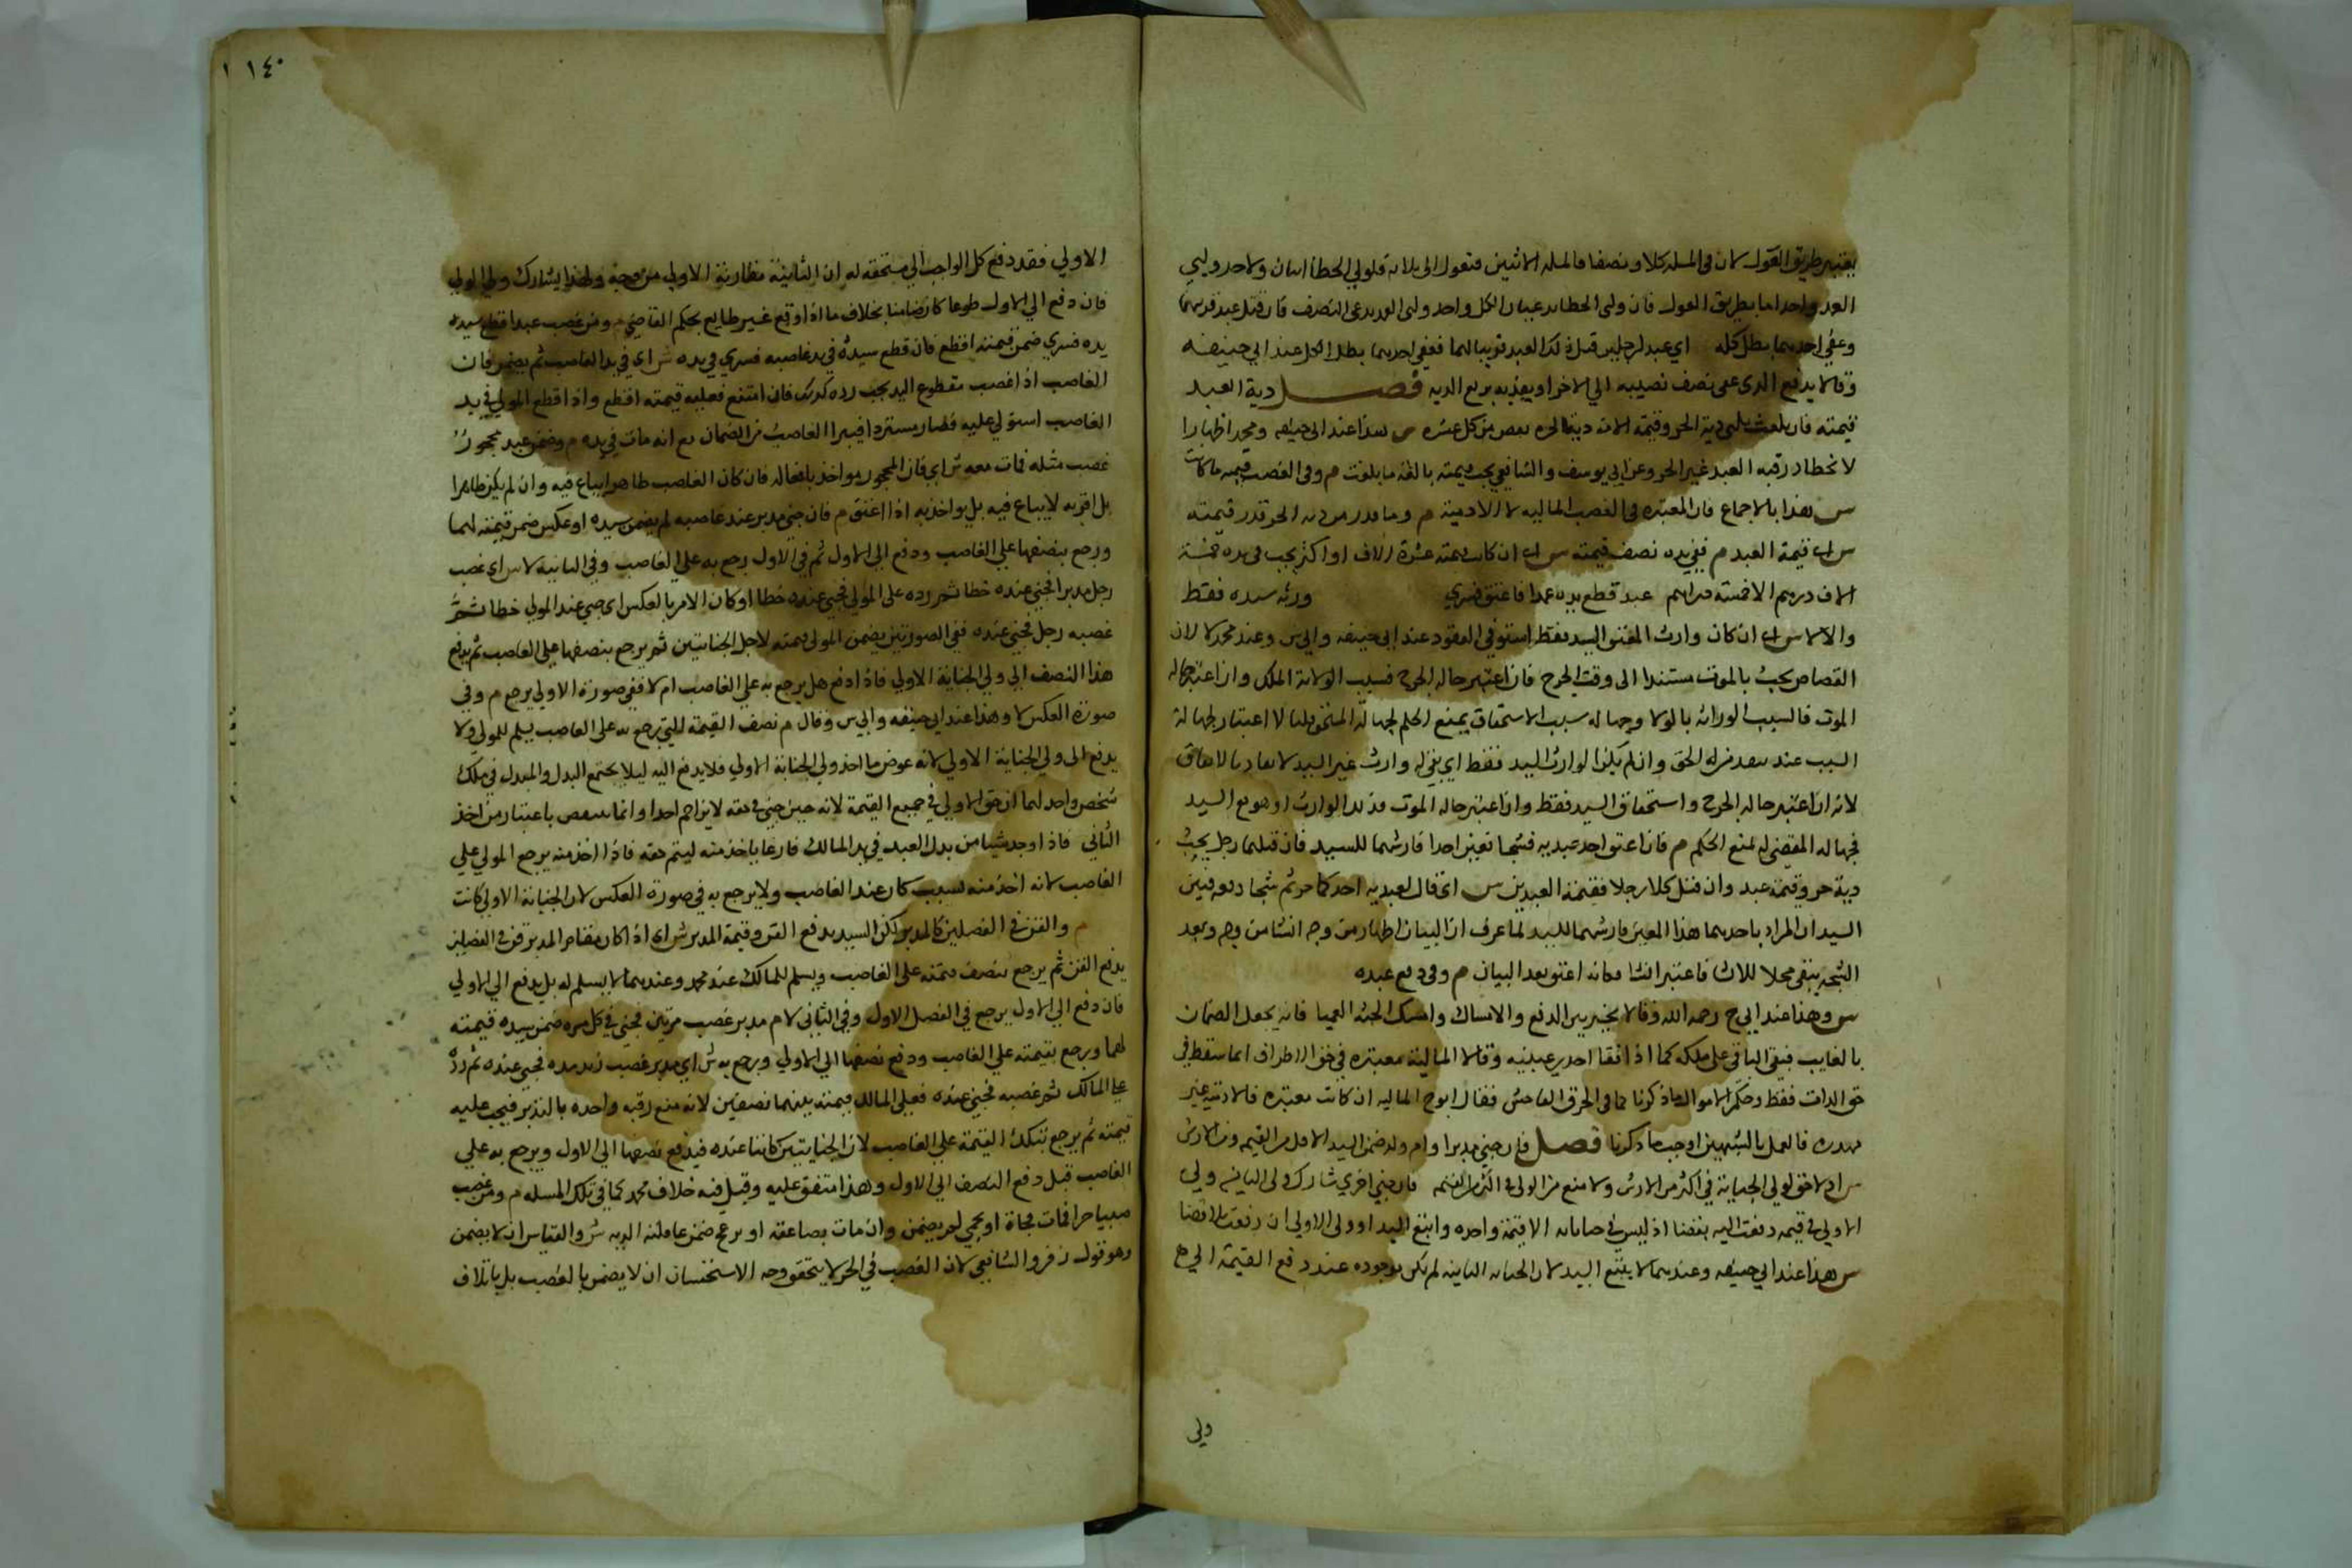 يعتبر طريق العول لان في المسله كلا ونصفا فالمسله من اثنين فتعول الى ثلاثه فلولي الخطا اثنان ولاحد وليي
العمد واحد اما بطريق العول فان ولي الخطا يدعيان الكل واحد ولى العمد يدعى النصف فان قتل عبد قريبهما
وعفي احدهما بطل كله اي عبد لرجلين قتل ذلك العبد قريبا لهما فعفى احدهما بطل الكل عند ابي حنيفه
وقالا يدفع الذى عفى نصف نصيبه الي الاخر او يفديه بربع الديه فصل دية العبد
قيمته فان بلغت هي دية الحر وقيمة الامة دية الحره نقص من كل عشره س هذا عند ابي حنيفه ومحمد اظهارا
لانحطاط رقبه العبد عن الحر وعن ابي يوسف والشافعي يجب قيمته بالغة ما بلغت م وفي الغصب قيمته ما كانت
س هذا بالاجماع فان المعتبره في الغصب الماليه لا الادمية م وما قدر من ديه الحر قدر من قيمته
س اى قيمة العبد م ففي يده نصف قيمته س اى ان كانت قيمته عشرة الاف او اكثر يجب في يده خمسة
الاف درهم الا خمسة دراهم عبد قطع يده عمدا فاعتق فسرى ورثه سيده فقط
والا لا س اى ان كان وارث المعتق السيد فقط استوفي القود عند ابي حنيفه وابي س وعند محمد لا لان
القصاص يجب بالموت مستندا الى وقت الجرح فان اعتبر حاله الجرح فسبب الولاية الملك وان اعتبر حاله
الموت فالسبب الوراثه بالولا وجهاله سبب الاستحقاق يمنع الحكم كجهالة المستحق قلنا لا اعتبار لجهالة
السبب عند تعدد من له الحق وان لم يكن الوارث السيد فقط اي بقي له وارث غير السيد لا يقاد بالاتفاق
لانه ان اعتبر حاله الجرح واستحقاق السيد فقط وان اعتبر حاله الموت فذلك الوارث او هو مع السيد
فجهاله المقضى له تمنع الحكم م فان اعتق احد عبديه فشجا فعين احدا فارشهما للسيد فان قتلهما رجل يجب
دية حر وقيمة عبد وان قتل كلا رجل فقيمة العبدين س اي قال لعبديه احدكما حر ثم شجا فعين
السيد ان المراد باحدهما هذا المعين فارشهما للسيد لما عرف ان البيان اظهار من وجه انشا من وجه وبعد
الشجه يبقى محلا للانشا فاعتبر انشا فكانه اعتق بعد البيان م وفي دفع عبده
س وهذا عند ابي ح رحمه الله وقالا يخير بين الدفع والامساك وامسك الجثه العميا فانه يجعل الضمان
بالغايب فبقي الباقي على ملكه كما اذا فقا احدى عينيه وقالا المالية معتبره في حق الاطراف انما سقط في
حق الذات فقط وحكم الاموال ما ذكرنا كما في الخرق الفاحش فقال ابو ح الماليه ان كانت معتبره فالادمية غير
مهدره فالعمل بالشبهين اوجب ما ذكرنا فصل فان جني مدبر او ام ولد ضمن السيد الاقل من القيمه ومن الارش
س اذ لا حق لولي الجناية في اكثر من الارش ولا منع من المولى في اكثر من القيمه فان جني اخري شارك ولي الثانيه ولي
الاولي في قيمه دفعت اليه بقضا اذ ليس في جناياته الا قيمة واحده واتبع السيد او ولي الاولي ان دفعت بلا قضا
س هذا عند ابي حنيفه وعندهما لا يتبع السيد لان الجنايه الثانيه لم تكن موجوده عند دفع القيمة الي ولي
ولي
١٤٠
الاولي فقد دفع كل الواجب الي مستحقه له ان الثانية مقارنة الاولي من وجه ولهذا يشارك ولي الاولي
فان دفع الي الاول طوعا كان ضامنا بخلاف ما اذا وقع غير طايع بحكم القاضي م ومن غصب عبدا قطع سيده
يده فسري ضمن قيمته اقطع فان قطع سيده في يد غاصبه فسري في يده ش اي في يد الغاصب لم يضمن فان
الغاصب اذا غصب مقطوع اليد يجب رده كذلك فان امتنع فعليه قيمته اقطع واذا قطع المولي في يد
الغاصب استولي عليه فصار مستردا فيبرا الغاصب من الضمان مع انه مات في يده م وضمن عبد محجور
غصب مثله فمات معه ش اي فان المحجور مواخذ بافعاله فان كان الغاصب ظاهرا يباع فيه وان لم يكن ظاهرا
بل اقر به لا يباع فيه بل يواخذ به اذا اعتق م فان جني مدبر عند غاصبه ثم عند سيده او عكس ضمن قيمته لهما
ورجع بنصفها علي الغاصب ودفع الي الاول ثم في الاول رجع به علي الغاصب وفي الثانيه لا س اي غصب
رجل مدبرا فجني عنده خطا ثم رده على المولي فجني عنده خطا او كان الامر بالعكس اى جني عند المولي خطا ثم
غصبه رجل فجني عنده ففي الصورتين يضمن المولى قيمته لاجل الجنايتين ثم يرجع بنصفها علي الغاصب ثم يدفع
هذا النصف الي ولي الجناية الاولي فاذا دفع هل يرجع به علي الغاصب ام لا ففي صورة الاولي يرجع م وفي
صورة العكس لا وهذا عند ابي حنيفه وابي س وقال م نصف القيمة التي رجع به على الغاصب يسلم للمولي ولا
يدفع الى ولي الجناية الاولي لانه عوض ما اخذ ولي الجناية الاولي فلا يدفع اليه ليلا يجتمع البدل والمبدل في ملك
شخص واحد لهما ان حق الاولي في جميع القيمة لانه حين جني في حقه لا يزاحم احدا وانما ينتقص باعتبار من اخذ
الثاني فاذا وجد شيا من بدل العبد في يد المالك فارغا ياخذ منه ليتم حقه فاذا اخذ منه يرجع المولي علي
الغاصب لانه اخذ منه بسبب كان عند الغاصب ولا يرجع به في صورة العكس لان الجناية الاولي كانت
م والقن في الفصلين كالمدبر لكن السيد يدفع القن وقيمة المدبر ش اى اذا كان مقام المدبر قن في الفصلين
يدفع القن ثم يرجع بنصف قيمته على الغاصب ويسلم للمالك عند محمد وعندهما لا يسلم له بل يدفع الي الاولي
فان دفع الي الاول يرجع في الفصل الاول وفي الثاني لا م مدبر غصب مرتين فجني في كل مره ضمن سيده قيمته
لهما ورجع بقيمته علي الغاصب ودفع نصفها الي الاولي ورجع به ش اي مدبر غصب فجني عنده ثم رده
علي المالك ثم غصبه فجني عنده فعلي المالك قيمته بينهما نصفين لانه منع رقبه واحده بالتدبير فيجب عليه
قيمته ثم يرجع بتلك القيمة علي الغاصب لان الجنايتين كانتا عنده فيدفع نصفها الي الاول ويرجع به علي
الغاصب قبل دفع النصف الي الاول وهذا متفق عليه وقيل فيه خلاف محمد كما في تلك المسله م ومن غصب
صبيا حرا فمات فجاة او بحمي لم يضمن وان مات بصاعقه او برعي ضمن عاقلته الديه ش والقياس ان لا يضمن
وهو قول زفر والشافعي لان الغصب في الحر لا يتحقق وجه الاستحسان ان لا يضمن بالغصب بل باتلاف